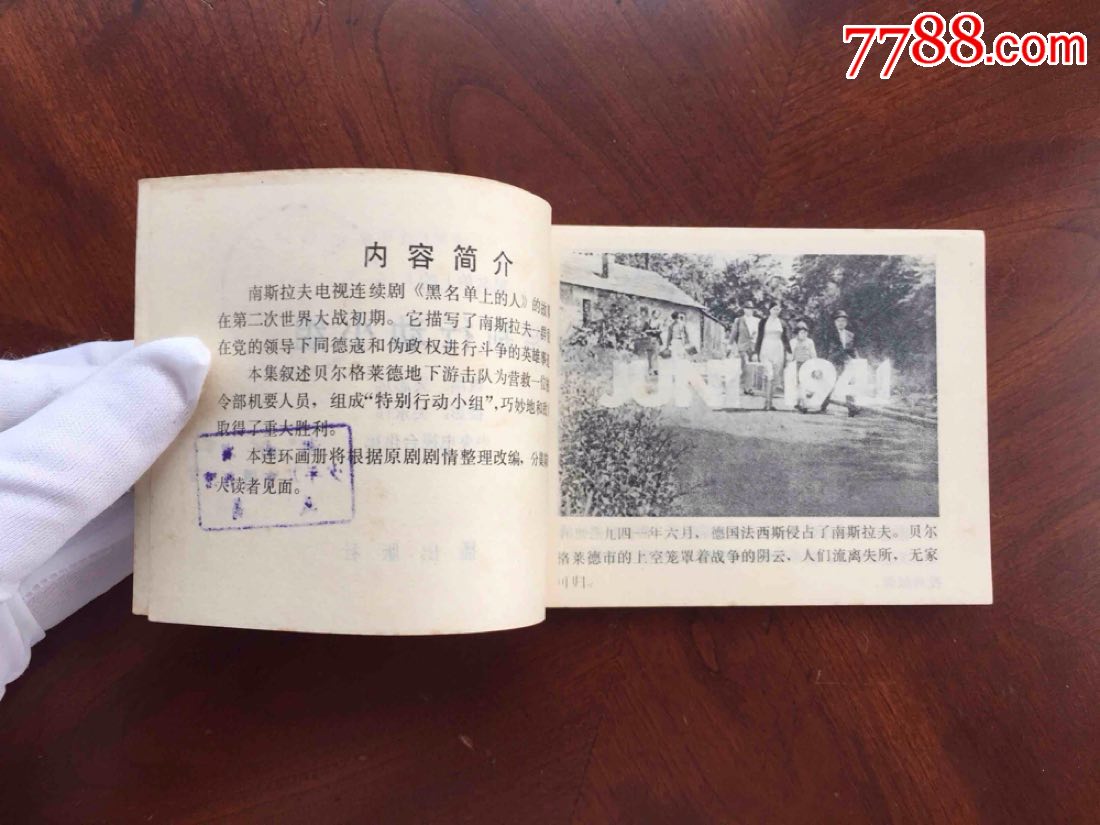 7788.com
内容简介
南斯拉夫电视连续剧《黑名单上的人》的故
在第二次世界大战初期。它描写了南斯拉夫一群
在党的领导下同德寇和伪政权进行斗争的英雄事
本集叙述贝尔格莱德地下游击队为营救一位
令部机要人员，组成“特别行动小组”，巧妙地和
取得了重大胜利。
本连环画册将根据原剧剧情整理改编，分集
大读者见面。
JUNI 1941
九四一年六月，德国法西斯侵占了南斯拉夫。贝尔
格莱德市的上空笼罩着战争的阴云，人们流离失所，无家
可归。